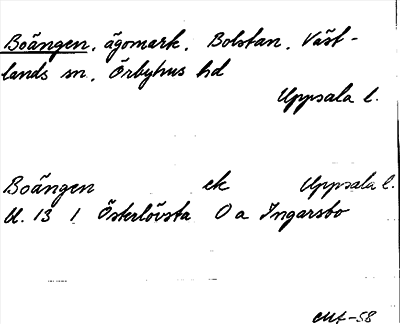 Boängen, ägomark, Bolstan, Väst-
lands sn, Örbyhus hd
Uppsala l.
Boängen ek Uppsala l.
U. 13 1 Österlövsta O a Ingarsbo
-58